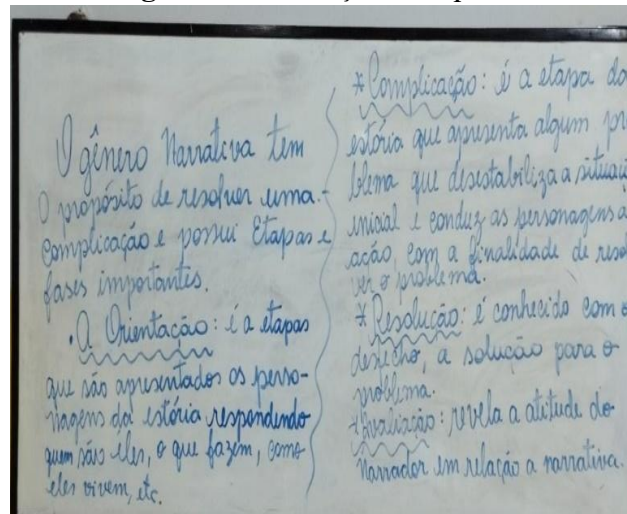 O gênero Narrativa tem
o propósito de resolver uma
complicação e possui Etapas e
fases importantes.
. A Orientação: é a etapas
que são apresentados os perso-
nagens da estória respondendo
quem são eles, o que fazem, como
eles vivem, etc.
* Complicação: é a etapa da
estória que apresenta algum pro
blema que desestabiliza a situaçã
inicial e conduz as personagens a
ação, com a finalidade de resol
ver o problema.
* Resolução: é conhecido com o
desfecho, a solução para o
problema.
* Avaliação: revela a atitude do
Narrador em relação a narrativa.